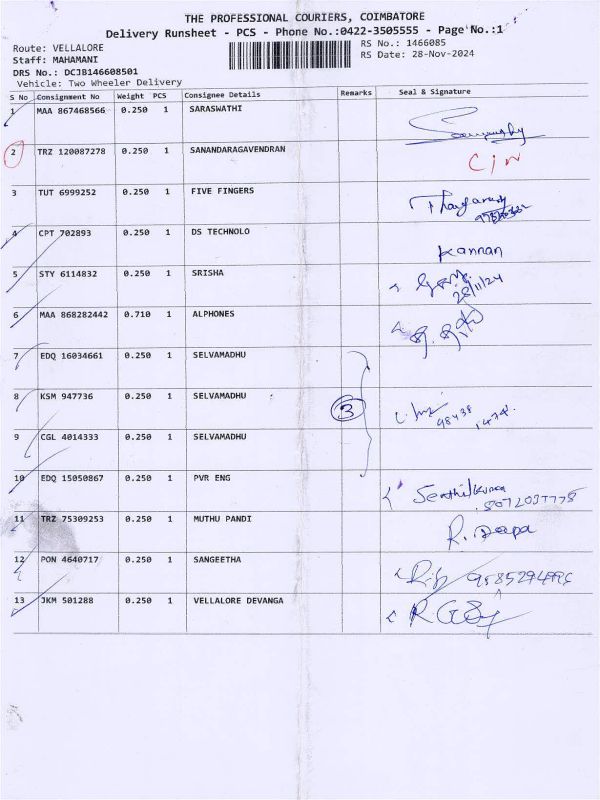 THE PROFESSIONAL COURIERS, COIMBATORE
Delivery Runsheet - PCS - Phone No.:0422-3505555 - Page No.:1
Route: VELLALORE
RS No.: 1466085
Staff: MAHAMANI
RS Date: 28-Nov-2024
DRS No.: DCJB146608501
Vehicle: Two Wheeler Delivery
S No Consignment No Weight PCS Consignee Details Remarks Seal & Signature
1 MAA 867468566 0.250 1 SARASWATHI
2 TRZ 120087278 0.250 1 SANANDARAGAVENDRAN
3 TUT 6999252 0.250 1 FIVE FINGERS
4 CPT 702893 0.250 1 DS TECHNOLO Kannan
5 STY 6114832 0.250 1 SRISHA
28/11/24
6 MAA 868282442 0.710 1 ALPHONES
7 EDQ 16034661 0.250 1 SELVAMADHU
8 KSM 947736 0.250 1 SELVAMADHU 3
98438
9 CGL 4014333 0.250 1 SELVAMADHU
10 EDQ 15050867 0.250 1 PVR ENG Senthilkumar
11 TRZ 75309253 0.250 1 MUTHU PANDI R. Deepa
12 PON 4640717 0.250 1 SANGEETHA
13 JKM 501288 0.250 1 VELLALORE DEVANGA